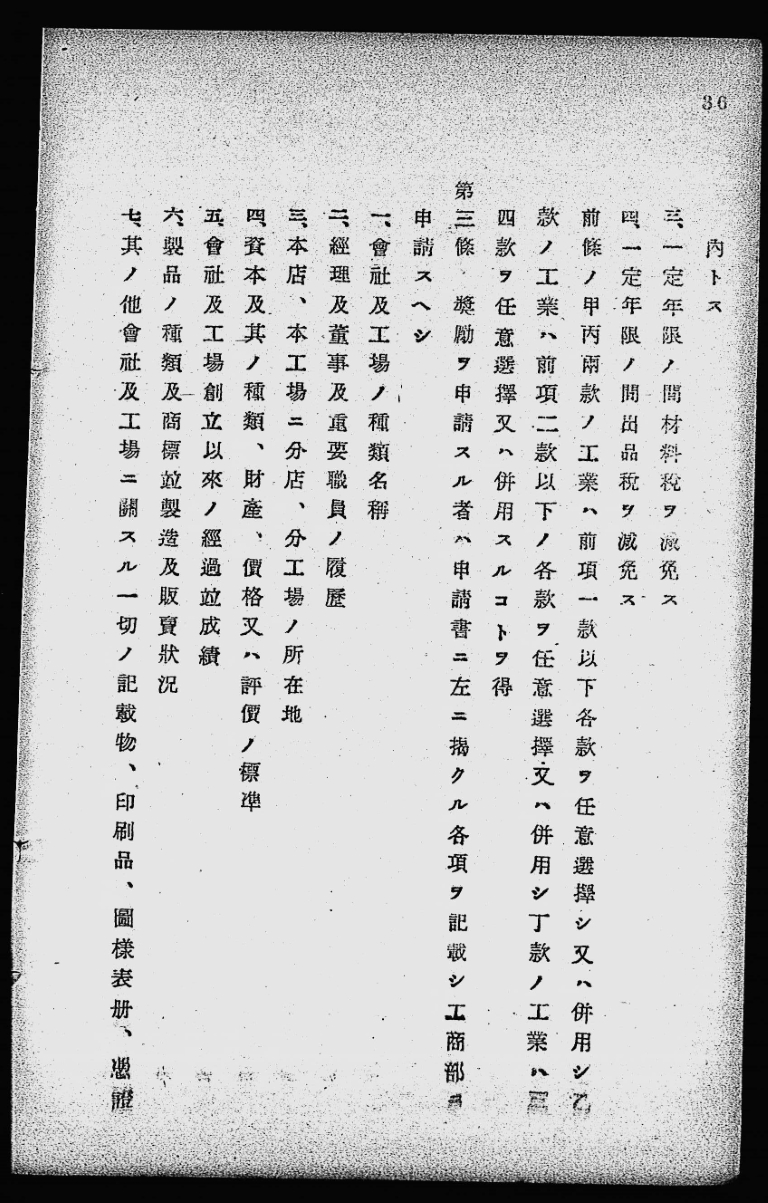 36
內トス
三、一定年限ノ間材料稅ヲ減免ス
四、一定年限ノ間出品稅ヲ減免ス
前條ノ甲丙兩款ノ工業ハ前項一款以下各款ヲ任意選擇シ又ハ併用シ乙
款ノ工業ハ前項二款以下ノ各款ヲ任意選擇又ハ併用シ丁款ノ工業ハ三
四款ヲ任意選擇又ハ併用スルコトヲ得
第三條 獎勵ヲ申請スル者ハ申請書ニ左ニ揭クル各項ヲ記載シ工商部
申請スヘシ
一、會社及工場ノ種類名稱
二、經理及董事及重要職員ノ履歷
三、本店、本工場ニ分店、分工場ノ所在地
四、資本及其ノ種類、財產、價格又ハ評價ノ標準
五、會社及工場創立以來ノ經過竝成績
六、製品ノ種類及商標竝製造及販賣狀況
七、其ノ他會社及工場ニ關スル一切ノ記載物、印刷品、圖樣表册、憑證